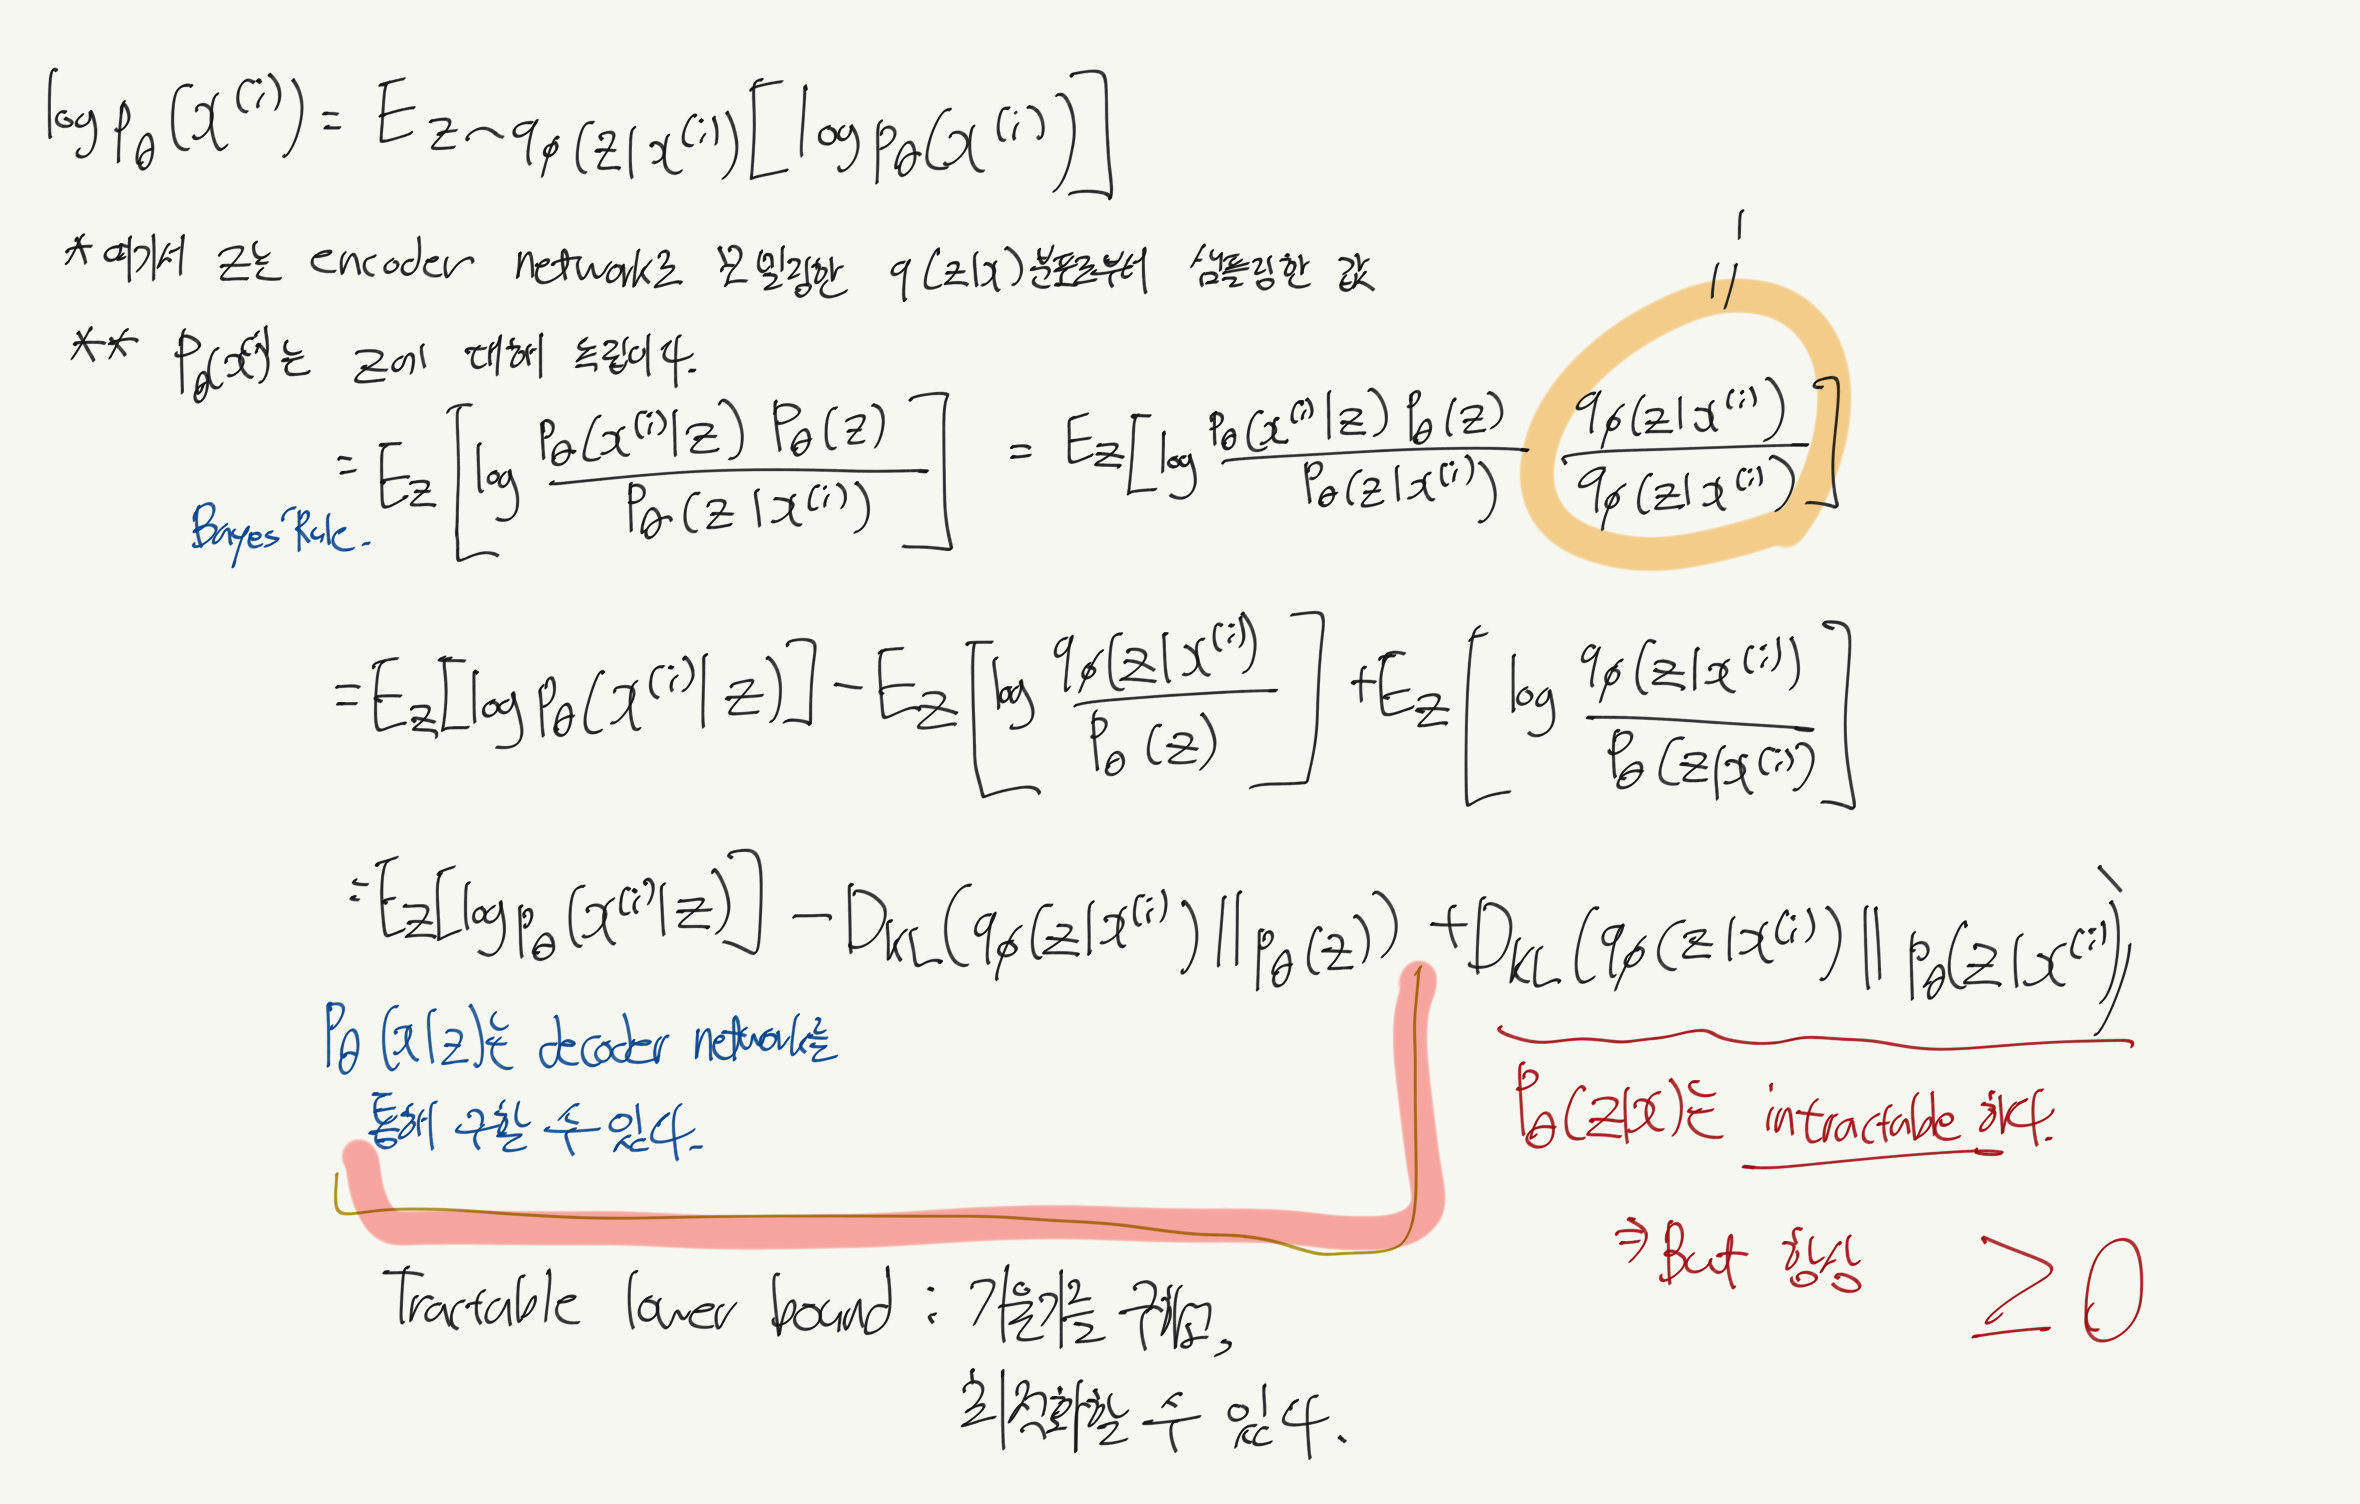 log pθ(x⁽ⁱ⁾) = E z~qφ(z|x⁽ⁱ⁾) [log pθ(x⁽ⁱ⁾)]
* 여기서 z는 encoder network로 모델링한 q(z|x)분포로부터 샘플링한 값
** Pθ(x⁽ⁱ⁾)는 z에 대해 독립이다.
1
=
= Ez [log Pθ(x⁽ⁱ⁾|z) Pθ(z) / Pθ(z|x⁽ⁱ⁾)] = Ez [log Pθ(x⁽ⁱ⁾|z) Pθ(z) / Pθ(z|x⁽ⁱ⁾) qφ(z|x⁽ⁱ⁾) / qφ(z|x⁽ⁱ⁾)]
Bayes' Rule.
= Ez[log pθ(x⁽ⁱ⁾|z)] − Ez [log qφ(z|x⁽ⁱ⁾) / Pθ(z)] + Ez [log qφ(z|x⁽ⁱ⁾) / Pθ(z|x⁽ⁱ⁾)]
= Ez[log pθ(x⁽ⁱ⁾|z)] − DKL(qφ(z|x⁽ⁱ⁾) || pθ(z)) + DKL(qφ(z|x⁽ⁱ⁾) || pθ(z|x⁽ⁱ⁾))
Pθ(x|z)는 decoder network를
통해 구할 수 있다.
Pθ(z|x)는 intractable 하다.
⇒ But 항상 ≥ 0
Tractable lower bound : 기울기를 구해,
최적화할 수 있다.